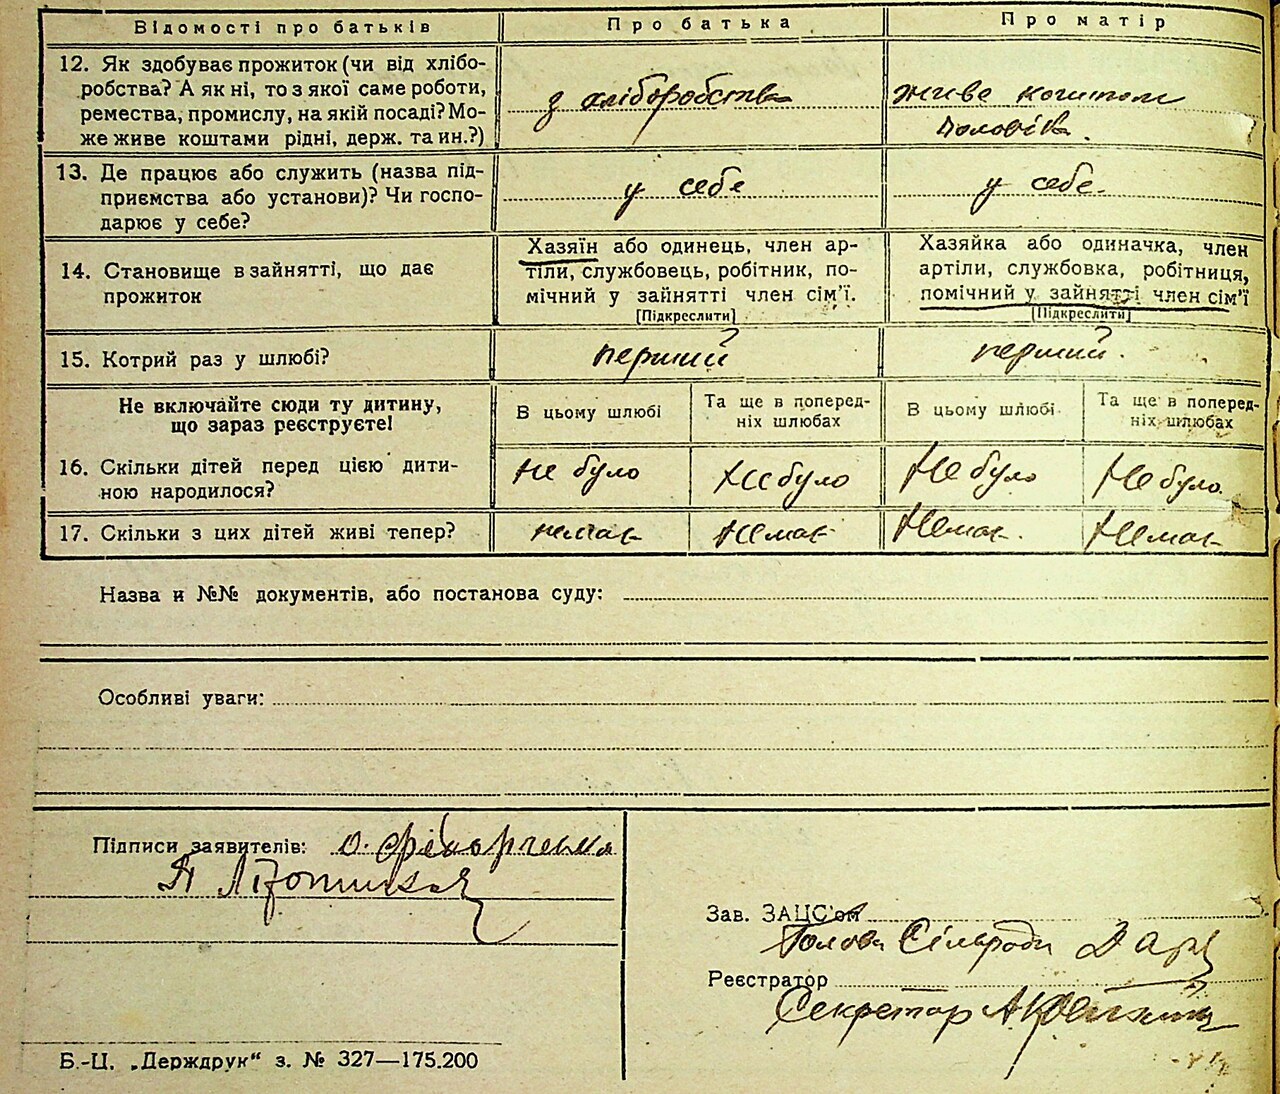 Відомості про батьків Про батька Про матір
12. Як здобуває прожиток (чи від хлібо-
робства? А як ні, то з якої саме роботи,
ремества, промислу, на якій посаді? Мо-
же живе коштами рідні, держ. та ин.?)
з хліборобства
живе коштом
чоловіка.
13. Де працює або служить (назва під-
приємства або установи)? Чи госпо-
дарює у себе?
у себе
у себе.
14. Становище в зайнятті, що дає
прожиток
Хазяїн або одинець, член ар-
тіли, службовець, робітник, по-
мічний у зайнятті член сім'ї.
[Підкреслити]
Хазяйка або одиначка, член
артіли, службовка, робітниця,
помічний у зайнятті член сім'ї
[Підкреслити]
15. Котрий раз у шлюбі? перший перший.
Не включайте сюди ту дитину,
що зараз реєструєте!
В цьому шлюбі
Та ще в поперед-
ніх шлюбах
В цьому шлюбі
Та ще в поперед-
ніх шлюбах
16. Скільки дітей перед цією дити-
ною народилося?
Не було Не було Не було Не було
17. Скільки з цих дітей живі тепер? немає Немає Немає. Немає
Назва и №№ документів, або постанова суду:
Особливі уваги:
Підписи заявителів: О.
П
Зав. ЗАЦС'ом
Голова Сільради
Реєстратор
Секретар
Б.-Ц. „Держдрук“ з. № 327—175.200